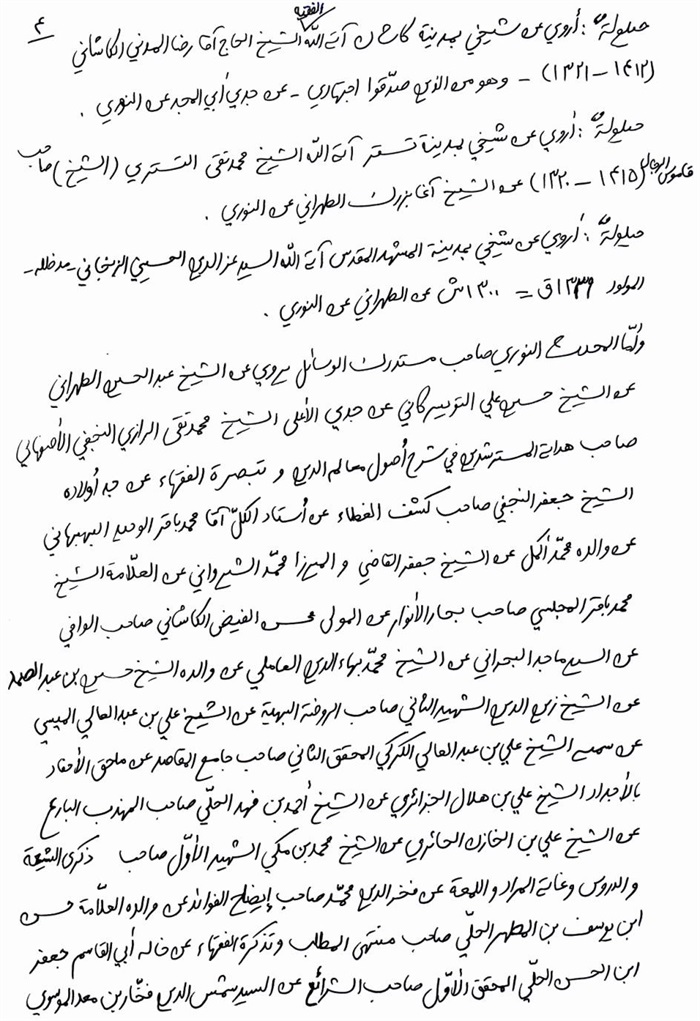 ٤
حيلولةٌ : أروي عن شيخي بمدينة كاشان آية اللّه الفقيه الشيخ الحاج آقا رضا المدني الكاشاني
(١٤١٢ – ١٣٢١) – وهو من الذين صدّقوا اجتهادي – عن جدي أبي المجد عن النوري .
حيلولةٌ : أروي عن شيخي بمدينة تستر آية اللّه الشيخ محمد تقى التستري (الشيخ) صاحب
قاموس الرجال (١٤١٥ – ١٣٢٠) عن الشيخ آغا بزرك الطهراني عن النوري .
حيلولةٌ : أروي عن شيخي بمدينة المشهد المقدس آية اللّه السيد عز الدين الحسيني الزنجاني – مد ظله –
المولود ق = ١٣٠٠ش عن الطهراني عن النوري .
وأمّا المحدث النوري صاحب مستدرك الوسائل يروي عن الشيخ عبد الحسين الطهراني
عن الشيخ حسين علي التويسركاني عن جدي الأعلى الشيخ محمد تقى الرازي النجفي الأصفهاني
صاحب هداية المسترشدين في شرح أصول معالم الدين و تبصرة الفقهاء عن جد أولاده
الشيخ جعفر النجفي صاحب كشف الغطاء عن أستاد الكلّ آقا محمد باقر الوحيد البهبهاني
عن والده محمّد أكمل عن الشيخ جعفر القاضي و الميرزا محمّد الشيرواني عن العلّامة الشيخ
محمد باقر المجلسي صاحب بحار الأنوار عن المولى محسن الفيض الكاشاني صاحب الوافي
عن السيد ماجد البحراني عن الشيخ محمّد بهاء الدين العاملي عن والده الشيخ حسين بن عبد الصمد
عن الشيخ زين الدين الشهيد الثاني صاحب الروضة البهية عن الشيخ علي بن عبد العالي الميسي
عن سميه الشيخ علي بن عبد العالي الكركي المحقق الثاني صاحب جامع المقاصد عن ملحق الأحفاد
بالأجداد الشيخ علي بن هلال الجزائري عن الشيخ أحمد بن فهد الحلّي صاحب المهذب البارع
عن الشيخ علي بن الخازن الحائري عن الشيخ محمد بن مكي الشهيد الأوّل صاحب ذكرى الشيعة
و الدروس و غاية المراد و اللمعة عن فخر الدين محمّد صاحب إيضاح الفوائد عن والده العلّامة حسن
ابن يوسف بن المطهر الحلّي صاحب منتهى المطلب و تذكرة الفقهاء عن خاله أبي القاسم جعفر
ابن الحسن الحلّي المحقق الأوّل صاحب الشرائع عن السيد شمس الدين فخّار بن معد الموسوي